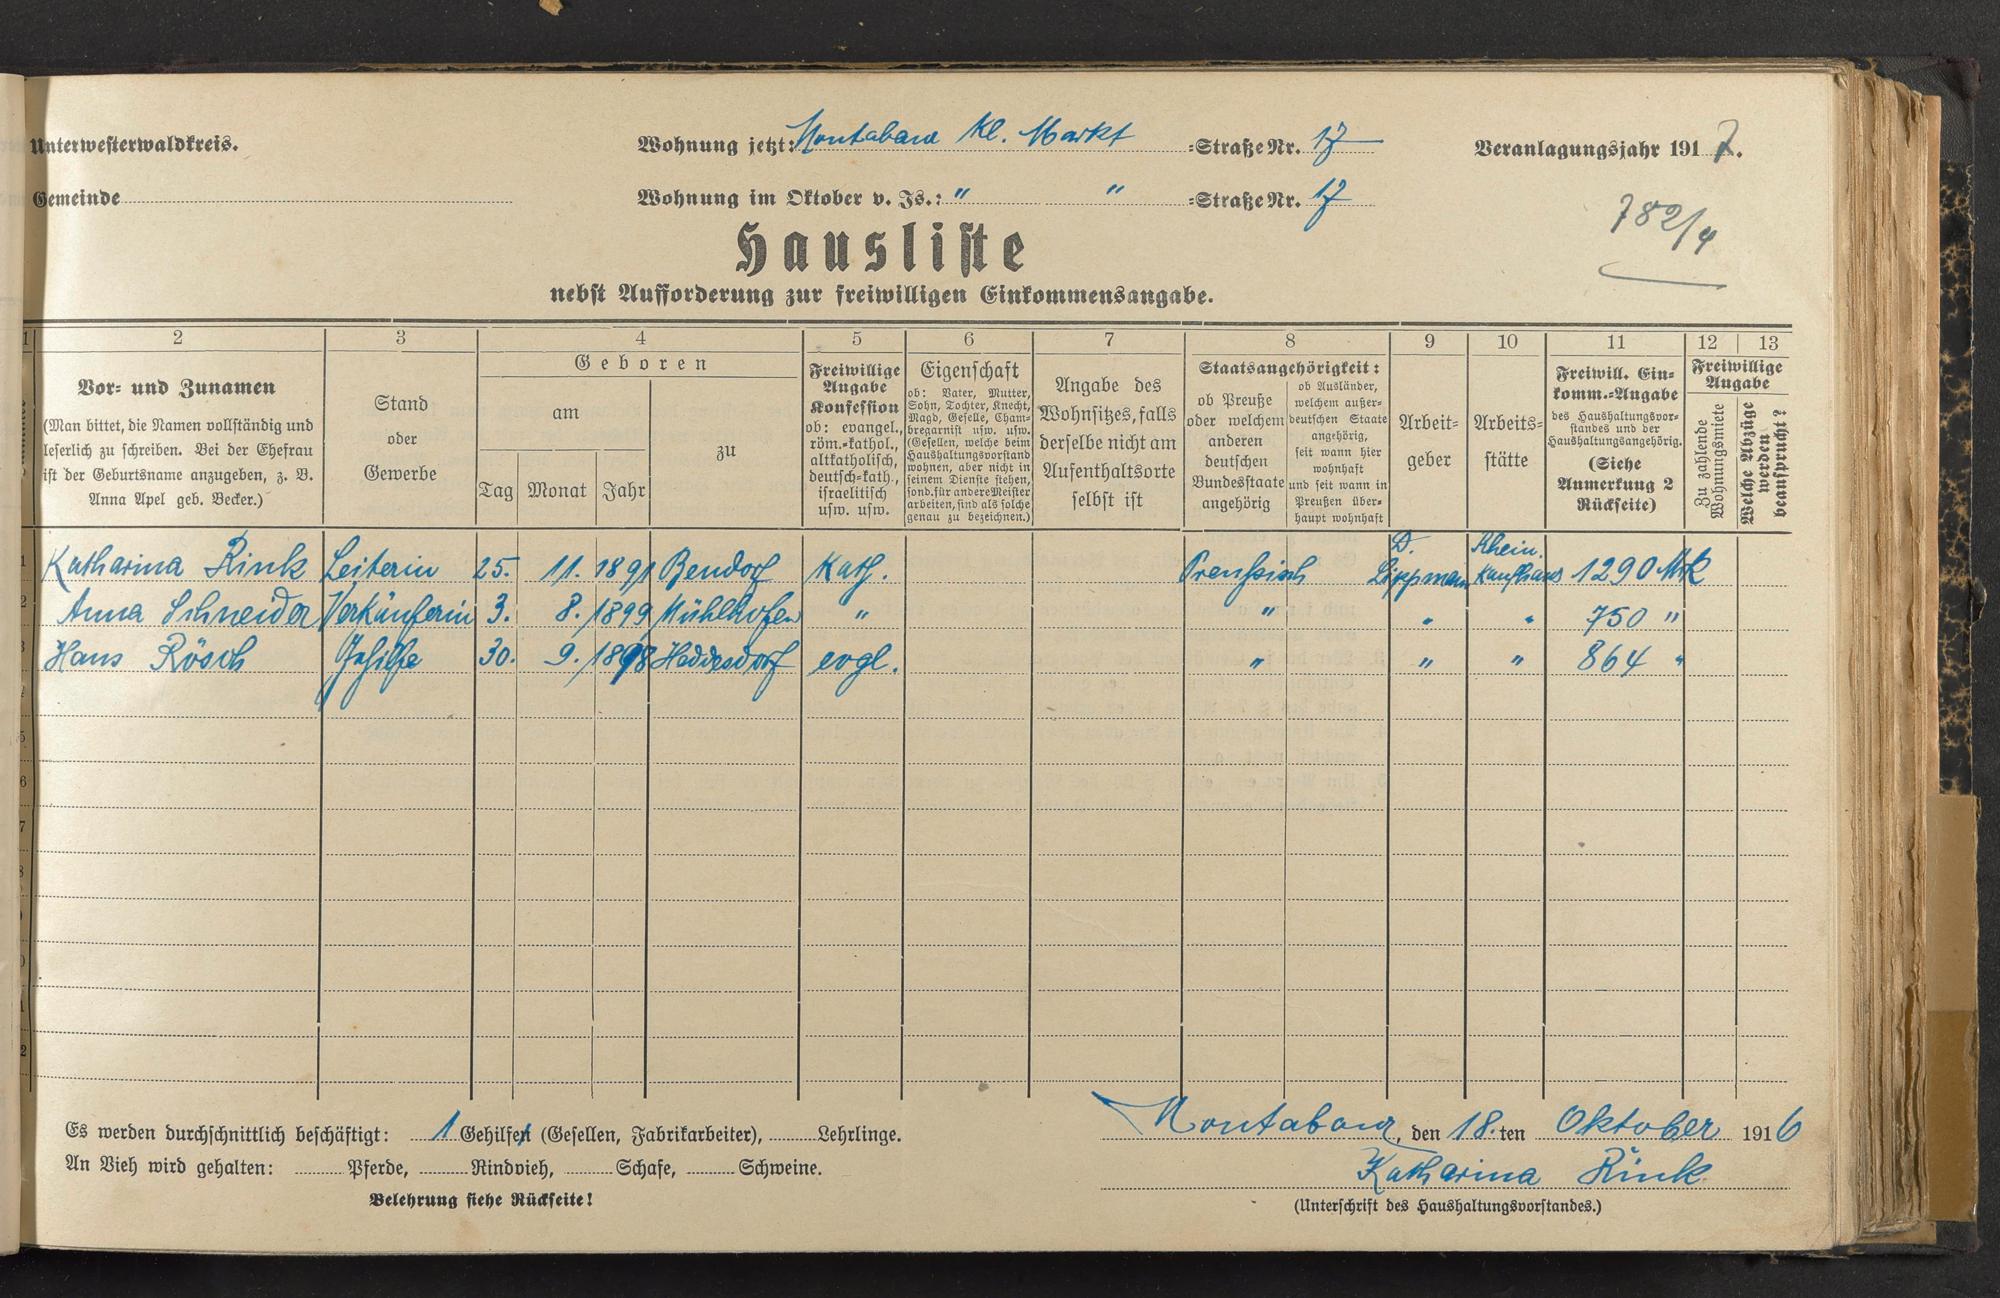 Unterwesterwaldkreis.
Wohnung jetzt: Montabaur Kl. Markt =Straße Nr. 17
Veranlagungsjahr 1917.
Gemeinde
Wohnung im Oktober v. Js.: " " =Straße Nr. 17
782/4
Hausliste
nebst Aufforderung zur freiwilligen Einkommensangabe.
1 2 3 4 5 6 7 8 9 10 11 12 13
Vor- und Zunamen
(Man bittet, die Namen vollständig und
leserlich zu schreiben. Bei der Ehefrau
ist der Geburtsname anzugeben, z. B.
Anna Apel geb. Becker.)
Stand
oder
Gewerbe
Geboren
am
Tag Monat Jahr
zu
Freiwillige
Angabe
Konfession
ob: evangel.,
röm.-kathol.,
altkatholisch,
deutsch-kath.,
israelitisch
usw. usw.
Eigenschaft
ob: Vater, Mutter,
Sohn, Tochter, Knecht,
Magd, Geselle, Cham-
bregarnist usw. usw.
(Gesellen, welche beim
Haushaltungsvorstand
wohnen, aber nicht in
seinem Dienste stehen,
sond. für andere Meister
arbeiten, sind als solche
genau zu bezeichnen.)
Angabe des
Wohnsitzes, falls
derselbe nicht am
Aufenthaltsorte
selbst ist
Staatsangehörigkeit:
ob Preuße
oder welchem
anderen
deutschen
Bundesstaate
angehörig
ob Ausländer,
welchem außer-
deutschen Staate
angehörig,
seit wann hier
wohnhaft
und seit wann in
Preußen über-
haupt wohnhaft
Arbeit-
geber
Arbeits-
stätte
Freiwill. Ein-
komm.-Angabe
des Haushaltungsvor-
standes und der
Haushaltungsangehörig.
(Siehe
Anmerkung 2
Rückseite)
Freiwillige
Angabe
Zu zahlende
Wohnungsmiete
Welche Abzüge
werden
beansprucht?
1 Katharina Rink Leiterin 25. 11. 1891 Bendorf Kath. Preussisch D. Lippmann Rhein. Kaufhaus 1290 Mrk
2 Anna Schneider Verkäuferin 3. 8. 1899 Mühlhofen " " " " 750 "
3 Hans Rösch Gehilfe 30. 9. 1898 Heddesdorf evgl. " " " 864 "
Es werden durchschnittlich beschäftigt: 1 Gehilfen (Gesellen, Fabrikarbeiter), Lehrlinge.
An Vieh wird gehalten: Pferde, Rindvieh, Schafe, Schweine.
Belehrung siehe Rückseite!
Montabaur, den 18.ten Oktober 1916
Katharina Rink
(Unterschrift des Haushaltungsvorstandes.)